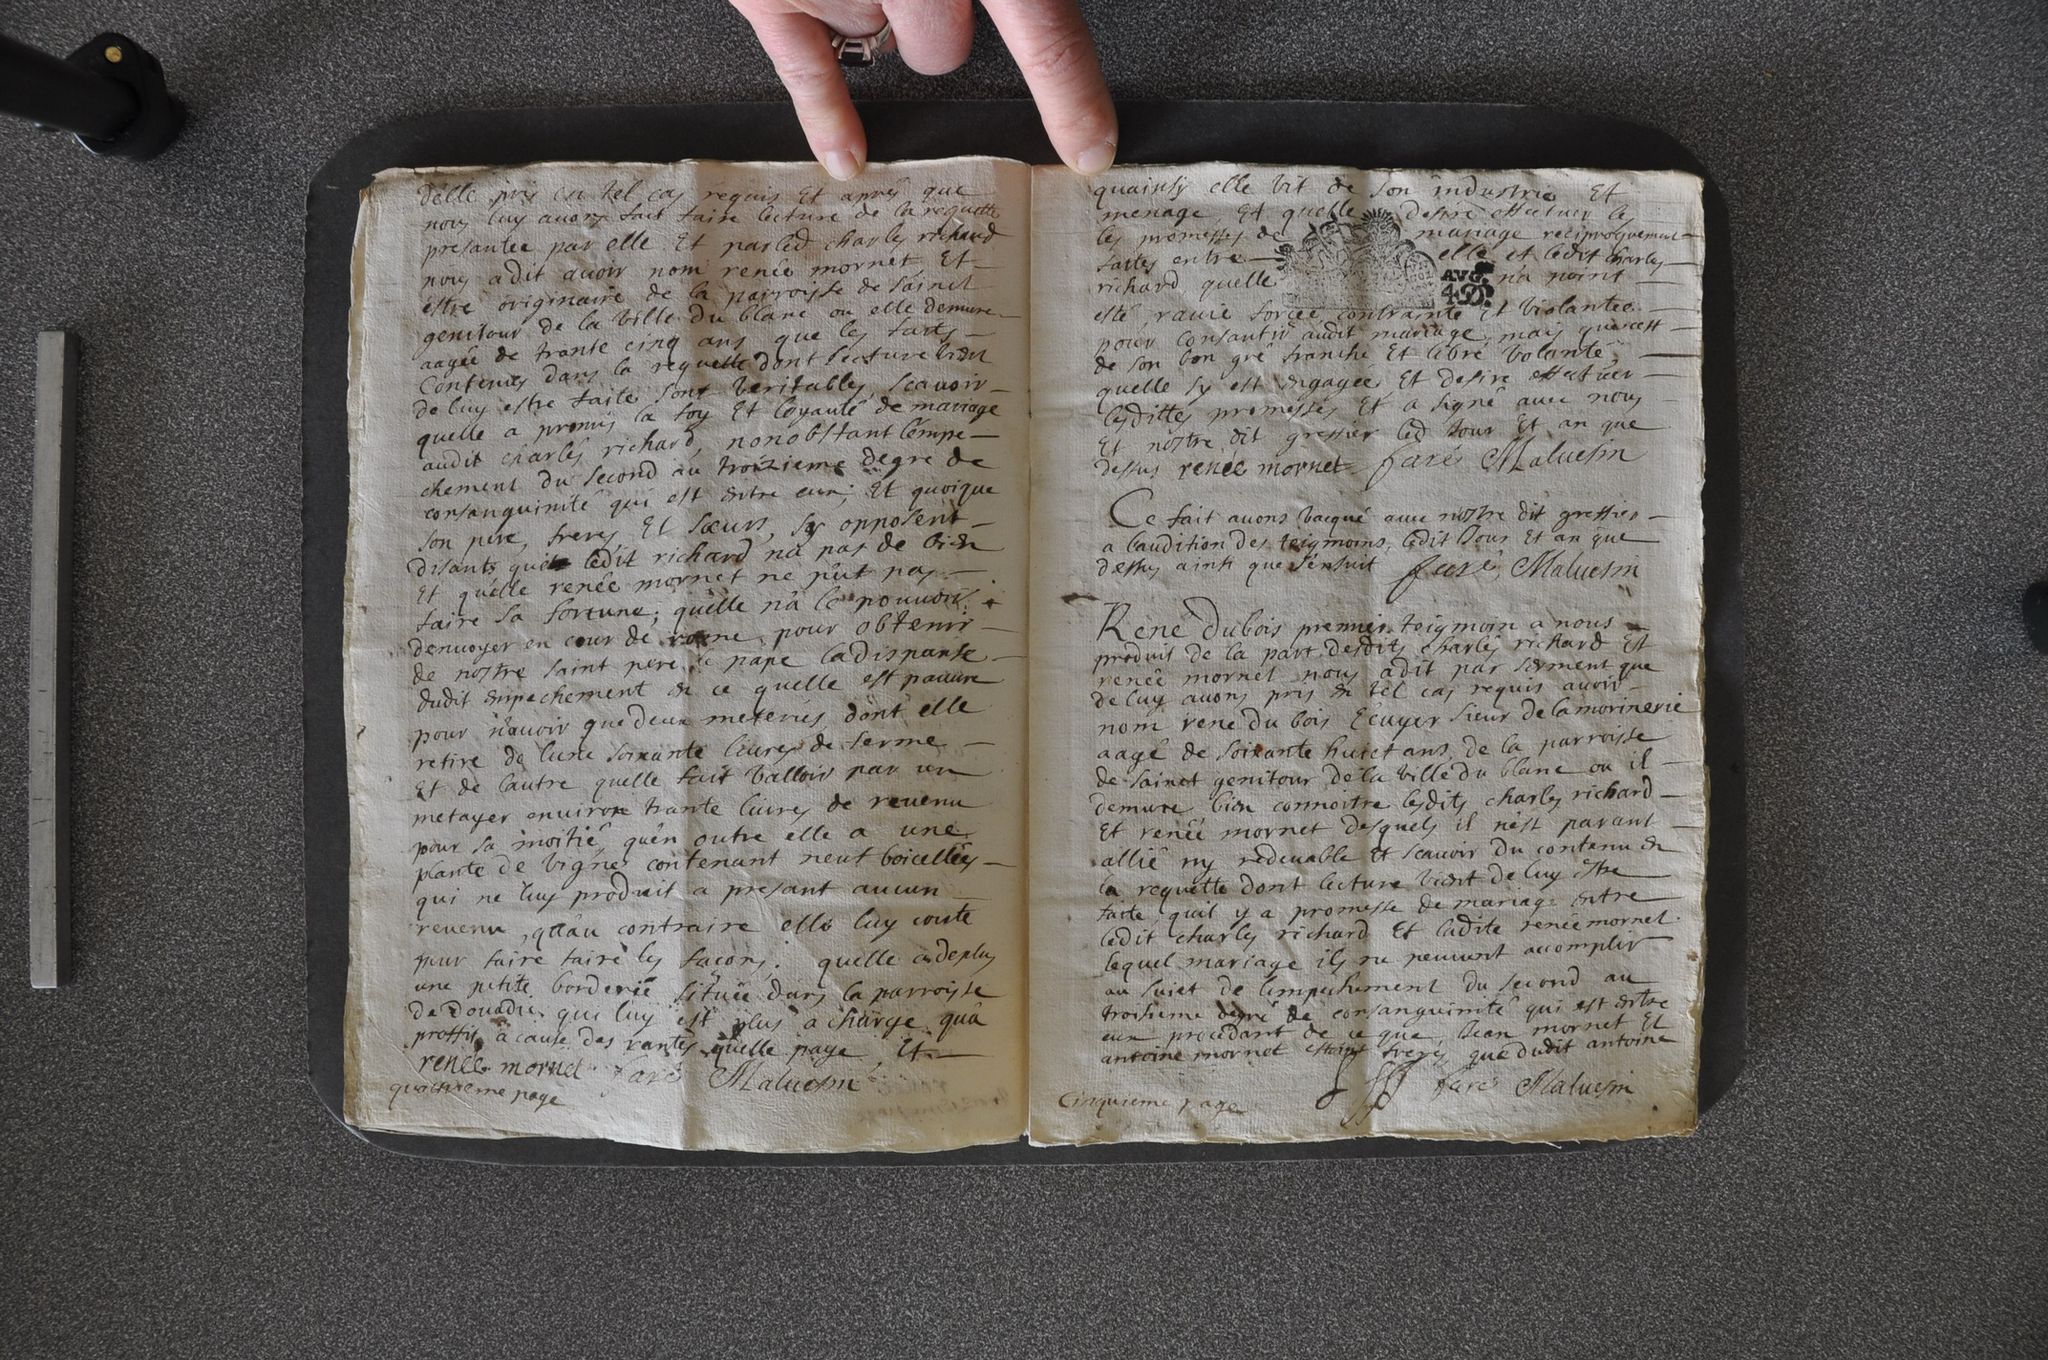 delle pris en tel cas requis Et aprés que
nous luy avons fait faire lecture de la requette
presantée par elle Et par led charles richard
nous a dit avoir nom renée mornet Et
estre originaire de la parroisse de sainct
genitour de la ville du blanc ou elle demure
aagée de trante cinq ans que les faits
Contenus dans la requette dont lecture vient
de luy estre faite sont veritables, scavoir
quelle a promis la foy Et loyauté de mariage
audit charles richard, nonobstant lempe
chement du second au troizieme degré de
consanguinité qui est entre eux; Et quoique
son pere, freres, Et sœurs, sy opposent
disants que ledit richard na pas de bien
Et quelle renée mornet ne put pas
faire sa fortune; quelle na le pouvoir
denvoyer en cour de rome pour obtenir
de nostre saint pere le pape la dispanse
dudit empechement en ce quelle est pauvre
pour n'avoir que deux meteries dont elle
retire de lune soixante livres de ferme
Et de lautre quelle fait valloir par un
metayer environ trante livres de revenu
pour sa moitié, quen outre elle a une
plante de vigne contenant neuf boicellées
qui ne luy produit a presant aucun
revenu, quau contraire elle luy coute
pour faire faire les facons; quelle a deplus
une petite borderie située dans la parroisse
de douadic qui luy est plus a charge qua
proffit a cause des rantes quelle paye, Et
renée mornet faré Maluesin
quatrieme page
quainsy elle vit de son industrie Et
menage, Et quelle desire effectuer les
les promesses de mariage reciproquemant
faites entre elle et ledit charles
richard quelle na point
AVG.
esté ravie forcée contrainte Et violantée
pour consantir audit mariage, mais que cest
de son bon gré franche Et libre volonté,
quelle sy est engagée Et desire effectuer
lesdittes promesses Et a signé avec nous
Et nostre dit greffier led jour Et an que
dessus renée mornet faré Maluesin
Ce fait avons vacqué avec nostre dit greffier
a laudition des teigmoins, ledit jour Et an que
dessus ainsi que sensuit faré Maluesin
René dubois premier teigmoin a nous
produit de la part desdits charles richard Et
renée mornet nous a dit par serment que
de luy avons pris en tel cas requis avoir
nom rene du bois Ecuyer sieur de lamorinerie
aagé de soixante huict ans, de la parroisse
de sainct genitour de la ville du blanc ou il
demure bien connoitre lesdits charles richard
Et renée mornet desquels il nest parant
allié ny redevable Et scavoir du contenu en
la requette dont lecture vient de luy estre
faite quil y a promesse de mariage entre
ledit charles richard Et ladite renée mornet
lequel mariage ils ne peuvent acomplir
au sujet de lempechement du second au
troisieme degré de consanguinité qui est entre
eux procedant de ce que Jean mornet Et
antoine mornet estoient freres, que dudit antoine
faré Maluesin
Cinquieme page